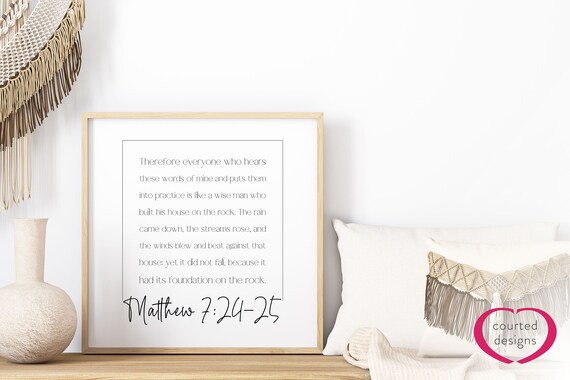 Therefore everyone who hears
these words of mine and puts them
into practice is like a wise man who
built his house on the rock. The rain
came down, the streams rose, and
the winds blew and beat against that
house; yet it did not fall, because it
had its foundation on the rock.
Matthew 7:24-25
courted
designs